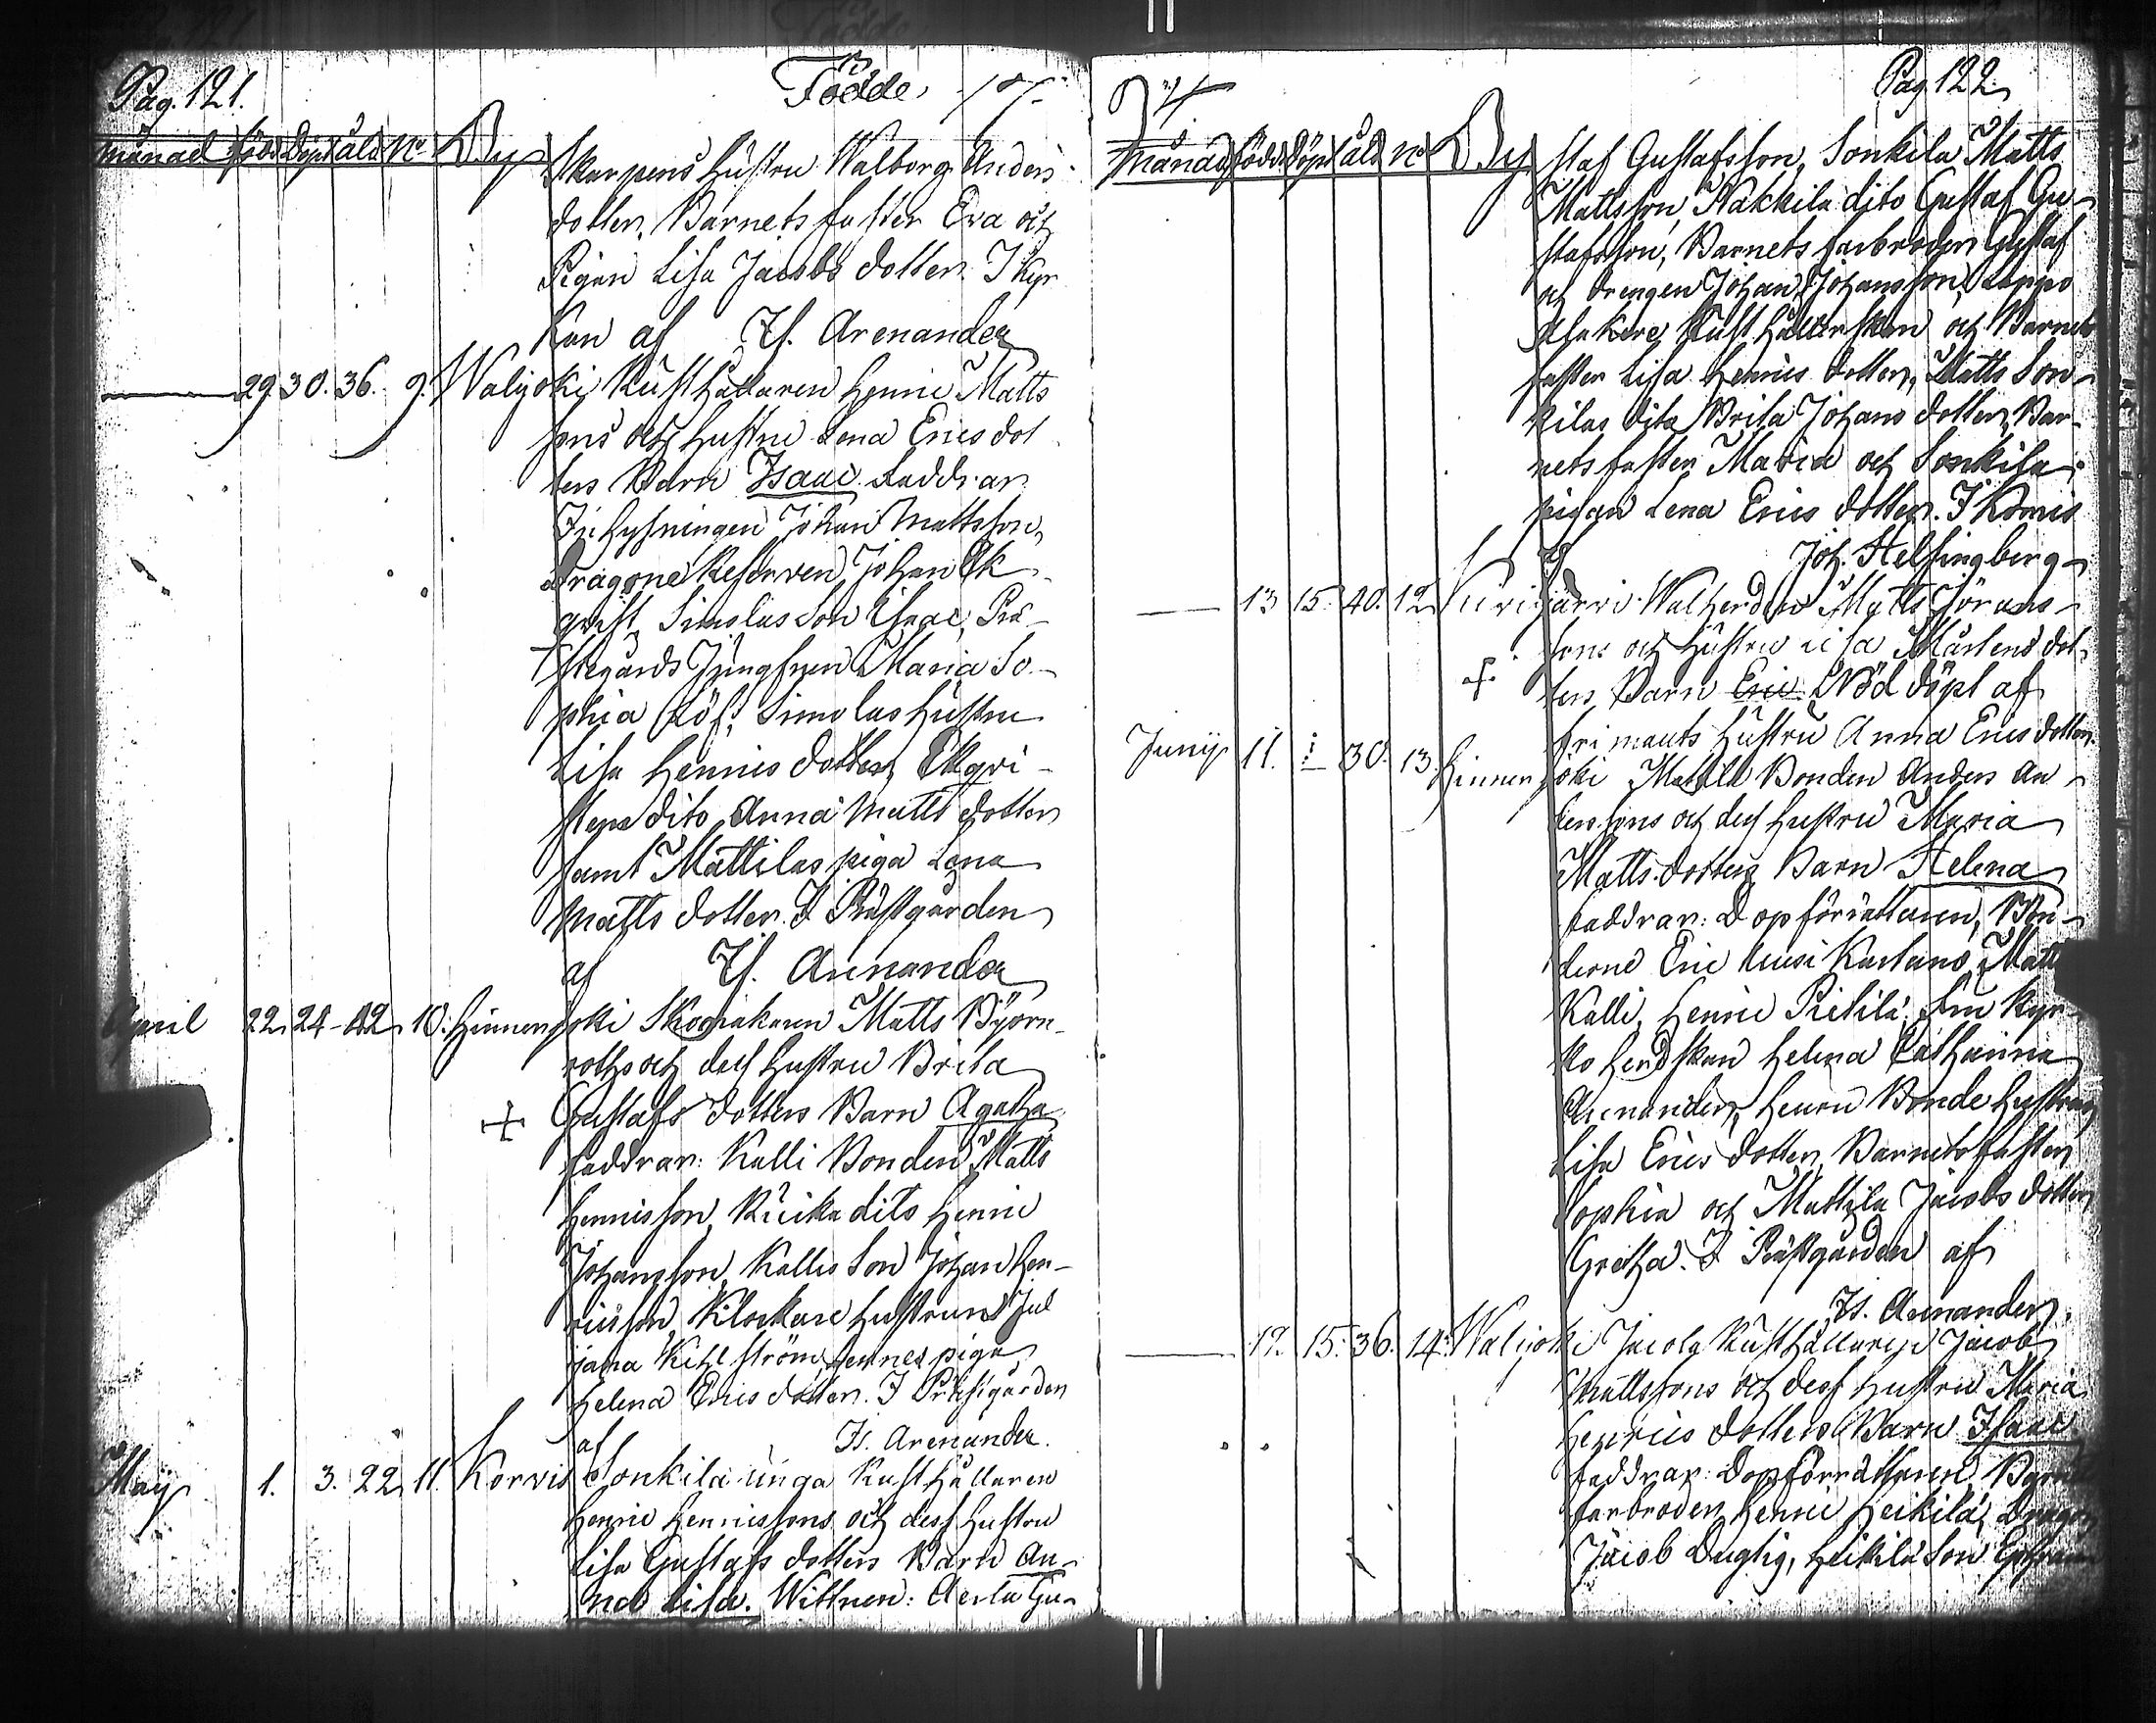 Pag. 121.
Födde,
Månad född döpt åld No By
Skarpens hustru Walborg Anders
dotter, Barnets faster Eva och
Pigan Lisa Jacobs dotter. I Kyr
kan af Is. Arenander
29. 30. 36. 9. Walijoki Rusthållaren Henric Matts
sons och hustru Lena Erics dot
ters Barn Isaac. Faddrar
Inhysningen Johan Mattsson,
Dragone Reserven Johan Ek
qvist, Simolas Son Isaac, Prä
stegårds Jungfrun Maria So-
phia Löf, Simolas hustru
Lisa Henrics dotter, Ekqvi-
stens dito Anna Matts dotter
samt Mattilas piga Lena
Matts dotter. I Prästgården
af Is. Arenander
April 22. 24 - 42. 10. Hinnerjoki Skogvakaren Matts Björn-
roths och dess hustru Brita
Gustafs dotters Barn Agatha
faddrar: Kalli Bonden Matts
Henricsson, Krickka dito Henric
Johansson, Kallis Son Johan Hen-
ricsson, Klockare hustrun Jul
jana Kihlström, hennes piga
Helena Erics dotter. I Prästgården
af Is. Arenander.
May 1. 3. 22. 11. Korvis Sonkila unga Rusthållaren
Henric Henricssons och dess hustru
Lisa Gustafs dotters Barn An-
na Lisa. Wittnen: Gu-
Pag 122
Månad född döpt åld No By
staf Gustafsson, Sonkila Matts
Mattsson, Kakkila dito Gustaf Gu-
stafsson, Barnets farbroder Gustaf
och drengen Johan Johansson Leppo
Rusthållerskan och Barnets
faster Lisa Henrics dotter, Matts Son-
kilas dito Brita Johans dotter, Bar-
nets faster Maria och Sonkila
pigan Lena Erics dotter. I Korvis
af Joh. Helsingberg
13 15. 40. 12. Kurijärvi Walherden Matts Jörans-
sons och hustru Lisa Mårtens dot
ters Barn Eric. Nöd döpt af
Frimants hustru Anna Erics dotter.
Junij 11. 30. 13. Hinnerjoki Mattila Bonden Anders An-
derssons och dess hustru Maria
Matts dotters Barn Helena
faddrar: Dopförrättaren, Bön-
derne Eric Matts
Kalli, Henric Pietilä, Fru Kyr-
ko herdskan Helena Catharina
Arenander, Bonde hustrun
Lisa Erics dotter, Barnets faster
Sophia och Mattila Jacobs dotter
Gretha. I Prästgården af
Is. Arenander.
12. 15. 36. 14. Walijoki Jacola Rusthållaren Jacob
Mattssons och dess hustru Maria
Henrics dotters Barn Isaac.
faddrar: Dopförrättaren, Barnets
farbroder Henric Heikilä, Dragon
Jacob Dugtig, Heikilä Son Ephraim